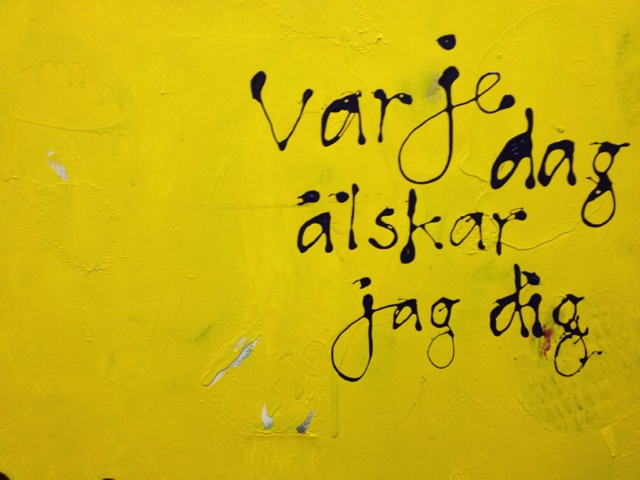 varje
dag
älskar
jag dig